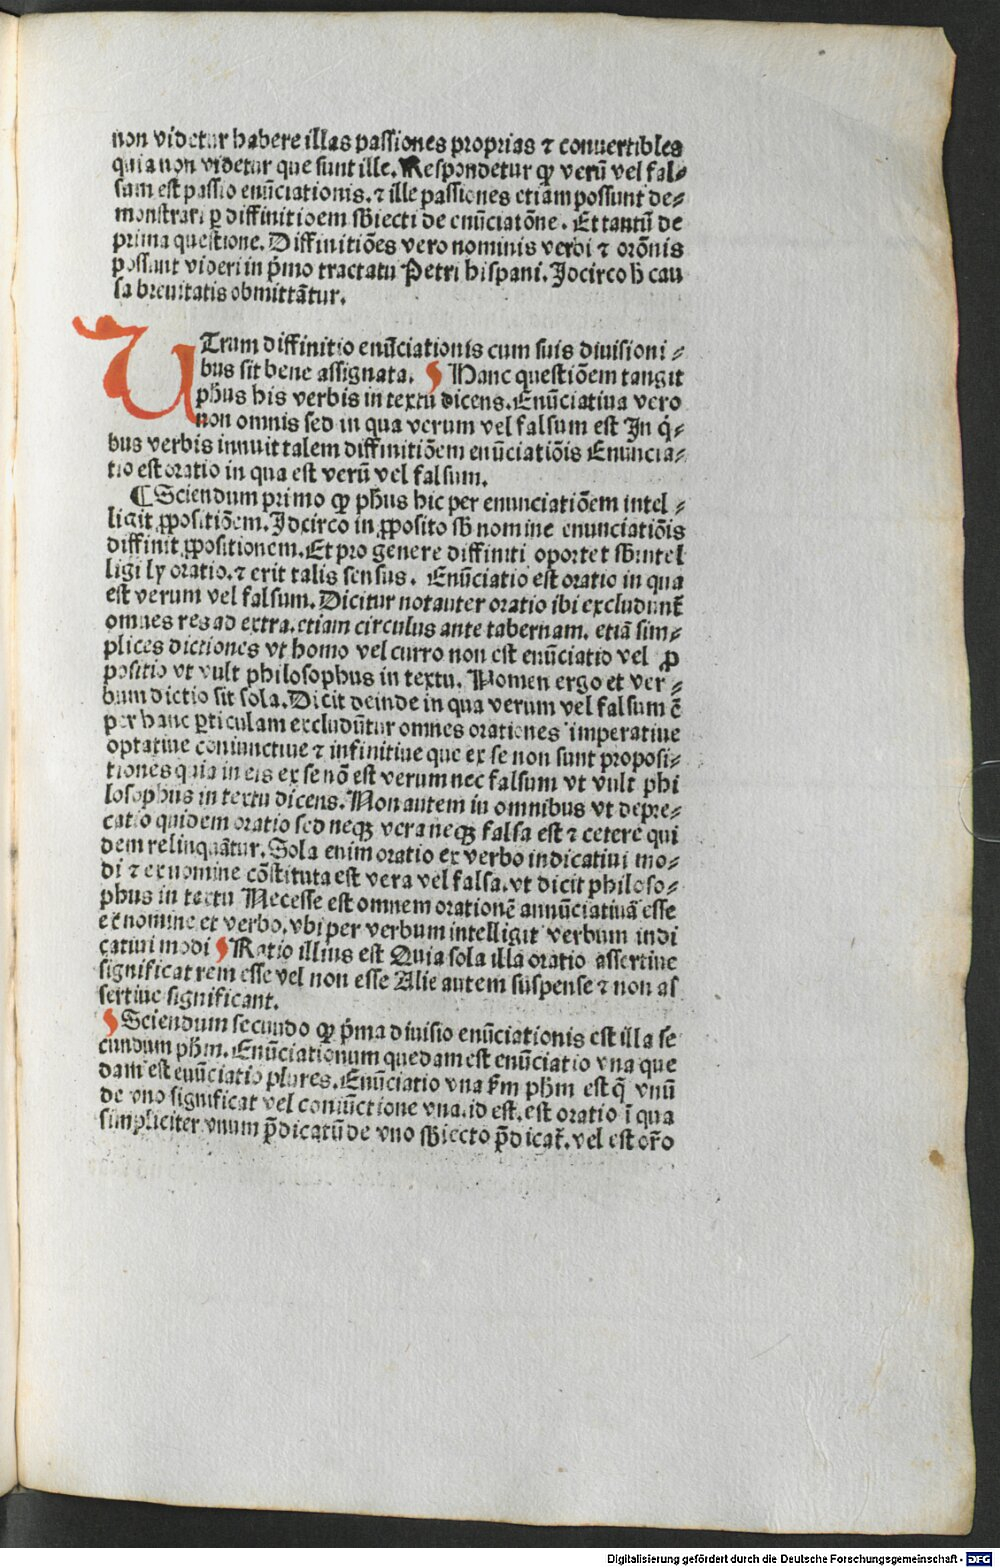 non videtur habere illas passiones proprias ⁊ conuertibles
quia non videtur que sunt ille. Respondetur ꝙ verū vel fal⸗
sum est passio enūciationis. ⁊ ille passiones etiam possunt de⸗
monstrari ꝑ diffinitioem sbiecti de enūciatōne. Et tantū de
prima questione. Diffinitiōes vero nominis verbi ⁊ orōnis
possunt videri in p̄mo tractatu Petri hispani. Idcirco h̄ cau
sa breuitatis obmittātur.
UTrum diffinitio enūciationis cum suis diuisioni⸗
bus sit bene assignata. ¶ Hanc questiōem tangit
ph̄us his verbis in textu dicens. Enūciatiua vero
non omnis sed in qua verum vel falsum est In q̇⸗
bus verbis innuit talem diffinitiōem enūciatiōis Enuncia⸗
tio est oratio in qua est verū vel falsum.
¶ Sciendum primo ꝙ ph̄us hic per enunciatiōem intel⸗
ligit ꝓpositiōem. Idcirco in ꝓposito sb nomine enunciatiōis
diffinit ꝓpositionem. Et pro genere diffiniti oportet sbintel
ligi ly oratio. ⁊ erit talis sensus. Enūciatio est oratio in qua
est verum vel falsum. Dicitur notanter oratio ibi excludunt̄
omnes res ad extra. etiam circulus ante tabernam. etiā sim⸗
plices dictiones vt homo vel curro non est enūciatio vel ꝓ
positio vt vult philosophus in textu. Nomen ergo et ver⸗
bum dictio sit sola. Dicit deinde in qua verum vel falsum ē
per hanc ꝑticulam excludūtur omnes orationes imperatiue
optatiue coniunctiue ⁊ infinitiue que ex se non sunt proposi⸗
tiones quia in eis ex se nō est verum nec falsum vt vult phi
losophus in textu dicens. Non autem in omnibus vt depre⸗
catio quidem oratio sed neqꝫ vera neqꝫ falsa est ⁊ cetere qui
dem relinquātur. Sola enim oratio ex verbo indicatiui mo⸗
di ⁊ ex nomine cōstituta est vera vel falsa. vt dicit philoso⸗
phus in textu Necesse est omnem orationē annūciatiuā esse
ex nomine et verbo. vbi per verbum intelligit verbum indi
catiui modi ¶ Ratio illius est Quia sola illa oratio assertiue
significat rem esse vel non esse Alie autem suspense ⁊ non as
sertiue significant.
¶ Sciendum secundo ꝙ p̄ma diuisio enūciationis est illa se
cundum ph̄m. Enūciationum quedam est enūciatio vna que
dam est enūciatio plures. Enūciatio vna ẜm phm est q̄ vnū
de vno significat vel coniūctione vna. id est. est oratio ī qua
simpliciter vnum p̄dicatū de vno sbiecto p̄dicat̄. vel est or̄o
Digitalisierung gefördert durch die Deutsche Forschungsgemeinschaft - DFG